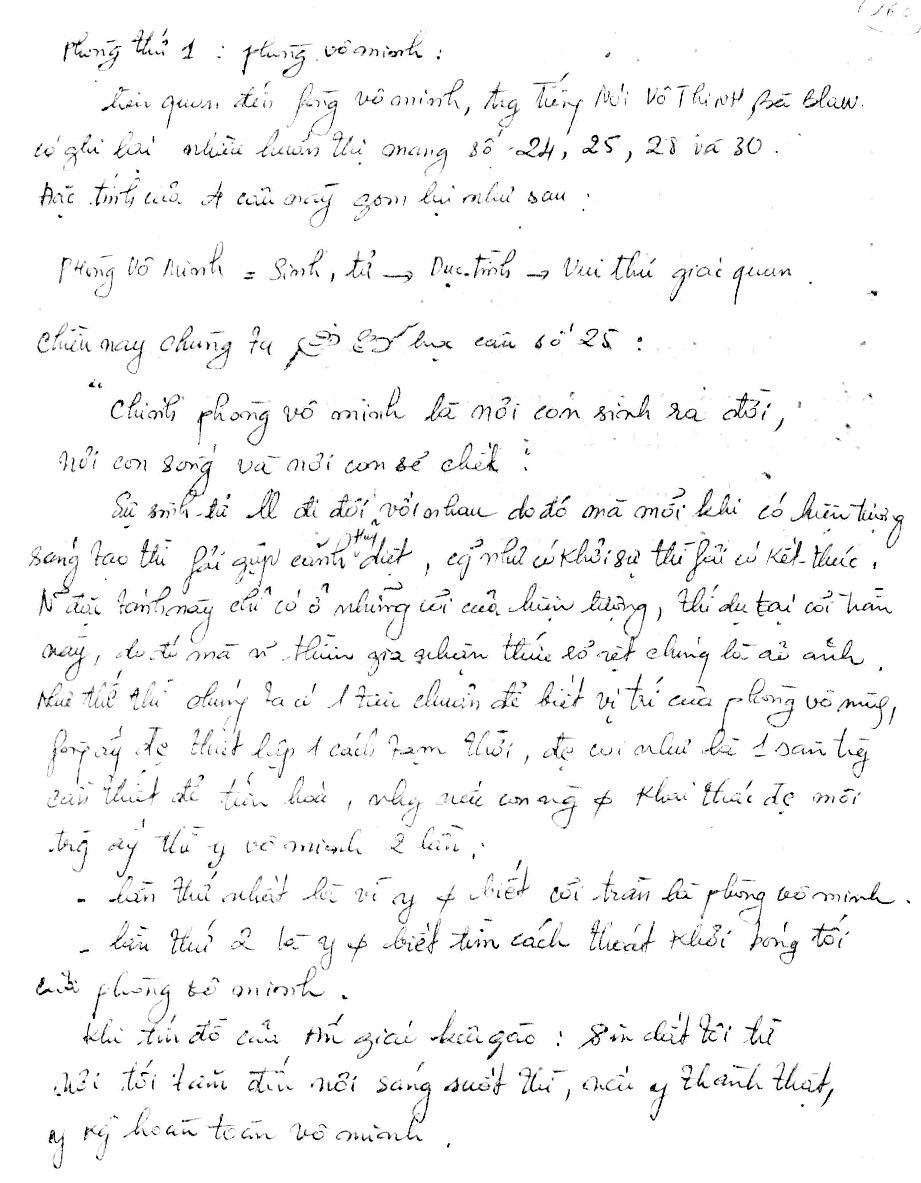 (160
Phòng thứ 1 : phòng vô minh :
liên quan đến fòng vô minh, trg Tiếng Nói Vô Thinh Bà Blaw.
có ghi lại nhiều huấn thị mang số 24, 25, 28 và 30 .
Đặc tính của 4 câu này gom lại như sau :
Phòng Vô Minh = Sinh, tử → Dục tính → Vui thú giác quan
Chiều nay chúng ta học câu số 25 :
“ Chính phòng vô minh là nơi con sinh ra đời,
nơi con sống và nơi con sẽ chết .
Sự sinh tử đi đôi với nhau do đó mà mỗi khi có hiện tượng
sáng tạo thì fải gặp cảnh huỷ diệt, cg như có khởi sự thì fải có kết thúc .
đặc tánh này chỉ có ở những cõi của hiện tượng, thí dụ tại cõi trần
này, do đó mà thiền gia nhận thức rõ rệt chúng là ảo ảnh .
Như thế thì chúng ta có 1 tiêu chuẩn để biết vị trí của phòng vô minh,
fòng ấy đc thiết lập 1 cách tạm thời, đc coi như là 1 sân trg
cần thiết để tiến hoá, nhg nếu con ng φ khai thác đc môi
trg ấy thì y vô minh 2 lần :
- lần thứ nhất là vì y φ biết cõi trần là phòng vô minh .
- lần thứ 2 là y φ biết tìm cách thoát khỏi bóng tối
của phòng vô minh .
Khi tín đồ của Ấn giáo kêu gào : Sin dắt tôi từ
nơi tối tăm đến nơi sáng suốt thì, nếu y thành thật,
y kg hoàn toàn vô minh .